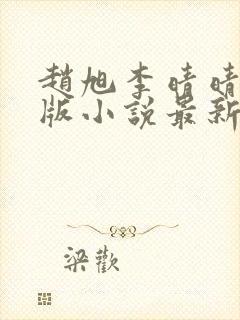 趙旭李晴晴
版小說最新
梁歡